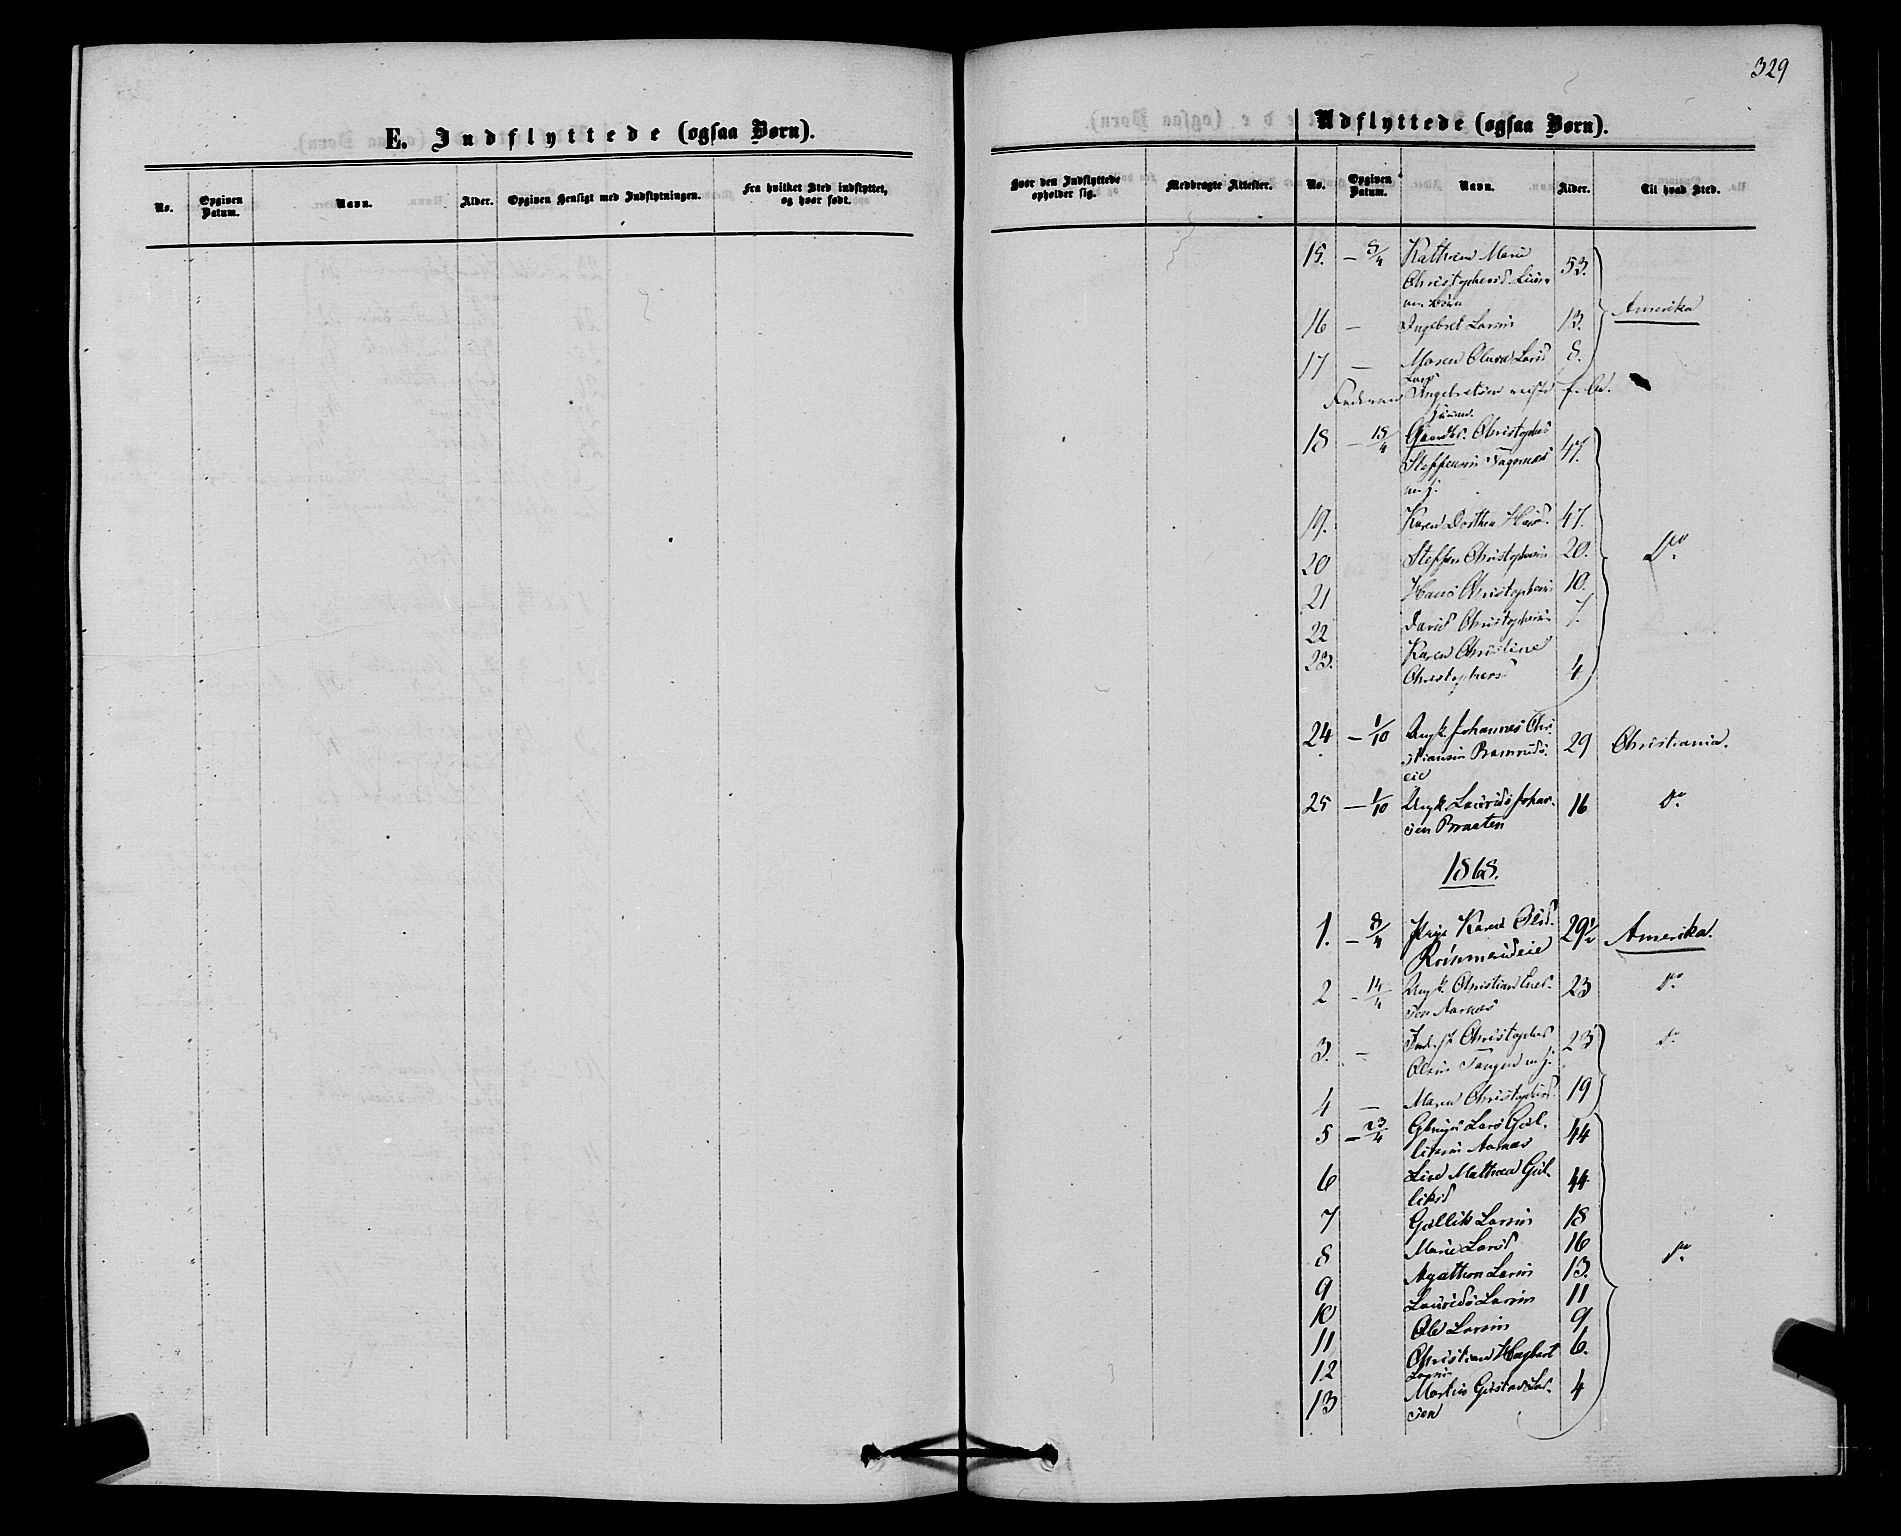 329
E. Indflyttede (ogsaa Børn).
No.
Opgiven Datum.
Navn.
Alder.
Opgiven Hensigt med Indflytningen.
Fra hvilket Sted indflyttet, og hvor født.
Udflyttede (ogsaa Børn).
Hvor den Indflyttede opholder sig.
Medbragte Attester.
No.
Opgiven Datum.
Navn.
Alder.
Til hvad Sted.
15. – 8/4 Kathrine Marie 53.
Christophersd.
16 – Ingebret Larsen 13. Amerika
17 – Maren Larsd 8.
Lars
Ingebretsen
18 – 18/4 Christopher 47.
Steffensen
m. f.
19. Karen Dorthea Hansd. 47.
20 Steffen Christophersen 20. Do
21 Hans Christophersen 10.
22 David Christophersen 7.
23. Karen Christine
Christophersd 4
24 – 1/10 Ungk. Johannes Chri
stiansen 29 Christiania.
eie
25 – 1/10 Ungk. Laurids Johan- 16 do
sen Braaten
1868.
1. – 8/4 Pige Karen Olsd. 29 1/2 Amerika.
2 – 14/4 Ungk. Christian 23 do
sen Aarnæs
3. – Christopher 23 do
Olsen Tangen m. f.
4 – Maren Christophersd. 19
5 – 23/4 Lars Gul- 44
liksen Aarnæs
6 Lise Mathea Gul- 44
liksd
7 Gullik Larsen 18
8 Marie Larsd 16 do
9 Agathon Larsen 13.
10 Laurids Larsen 11
11 Ole Larsen 9
12 Christian Hagbart 6.
Larsen
13 Martin Gustav Lar- 4
sen